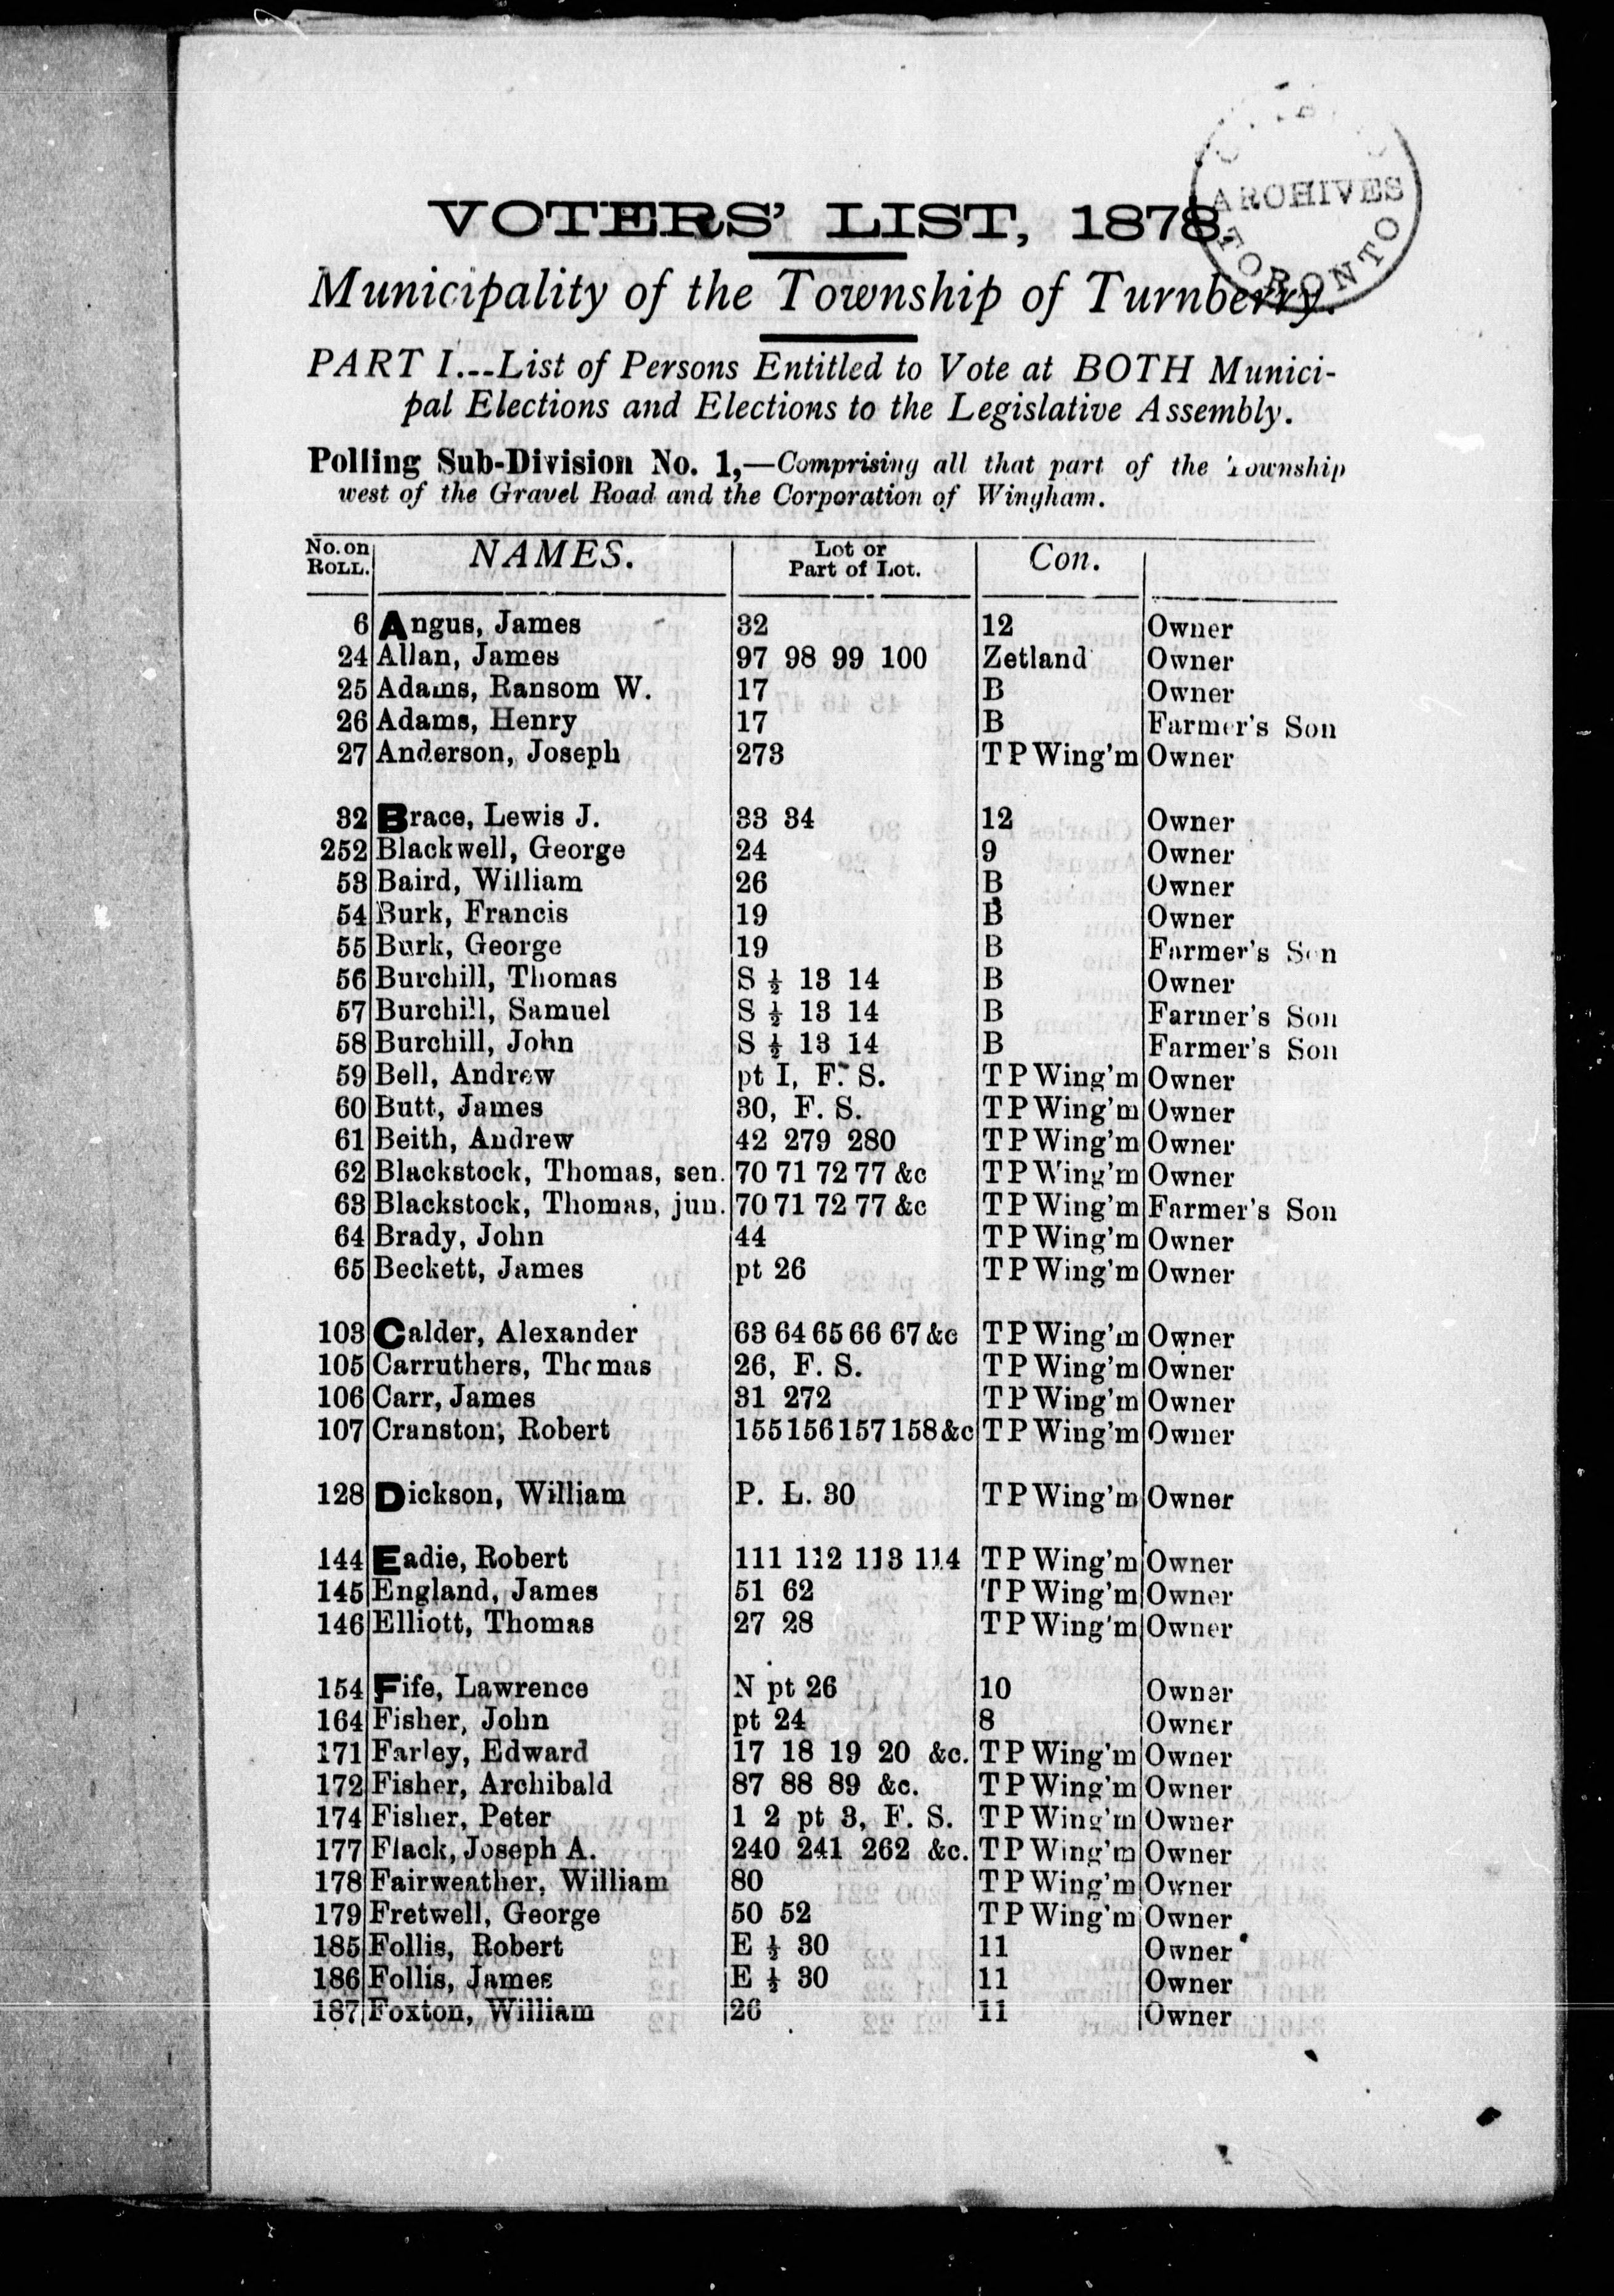 VOTERS' LIST, 1878.
ARCHIVES
TORONTO
Municipality of the Township of Turnberry.
PART I.--List of Persons Entitled to Vote at BOTH Munici-
pal Elections and Elections to the Legislative Assembly.
Polling Sub-Division No. 1,—Comprising all that part of the Township
west of the Gravel Road and the Corporation of Wingham.
No. on ROLL. NAMES. Lot or Part of Lot. Con.
6 Angus, James 32 12 Owner
24 Allan, James 97 98 99 100 Zetland Owner
25 Adams, Ransom W. 17 B Owner
26 Adams, Henry 17 B Farmer's Son
27 Anderson, Joseph 273 T P Wing'm Owner
32 Brace, Lewis J. 33 34 12 Owner
252 Blackwell, George 24 9 Owner
53 Baird, William 26 B Owner
54 Burk, Francis 19 B Owner
55 Burk, George 19 B Farmer's Son
56 Burchill, Thomas S ½ 13 14 B Owner
57 Burchill, Samuel S ½ 13 14 B Farmer's Son
58 Burchill, John S ½ 13 14 B Farmer's Son
59 Bell, Andrew pt I, F. S. T P Wing'm Owner
60 Butt, James 30, F. S. T P Wing'm Owner
61 Beith, Andrew 42 279 280 T P Wing'm Owner
62 Blackstock, Thomas, sen. 70 71 72 77 &c T P Wing'm Owner
63 Blackstock, Thomas, jun. 70 71 72 77 &c T P Wing'm Farmer's Son
64 Brady, John 44 T P Wing'm Owner
65 Beckett, James pt 26 T P Wing'm Owner
103 Calder, Alexander 63 64 65 66 67 &c T P Wing'm Owner
105 Carruthers, Thomas 26, F. S. T P Wing'm Owner
106 Carr, James 31 272 T P Wing'm Owner
107 Cranston, Robert 155 156 157 158 &c T P Wing'm Owner
128 Dickson, William P. L. 30 T P Wing'm Owner
144 Eadie, Robert 111 112 113 114 T P Wing'm Owner
145 England, James 51 62 T P Wing'm Owner
146 Elliott, Thomas 27 28 T P Wing'm Owner
154 Fife, Lawrence N pt 26 10 Owner
164 Fisher, John pt 24 8 Owner
171 Farley, Edward 17 18 19 20 &c. T P Wing'm Owner
172 Fisher, Archibald 87 88 89 &c. T P Wing'm Owner
174 Fisher, Peter 1 2 pt 3, F. S. T P Wing'm Owner
177 Flack, Joseph A. 240 241 262 &c. T P Wing'm Owner
178 Fairweather, William 80 T P Wing'm Owner
179 Fretwell, George 50 52 T P Wing'm Owner
185 Follis, Robert E ½ 30 11 Owner
186 Follis, James E ½ 30 11 Owner
187 Foxton, William 26 11 Owner